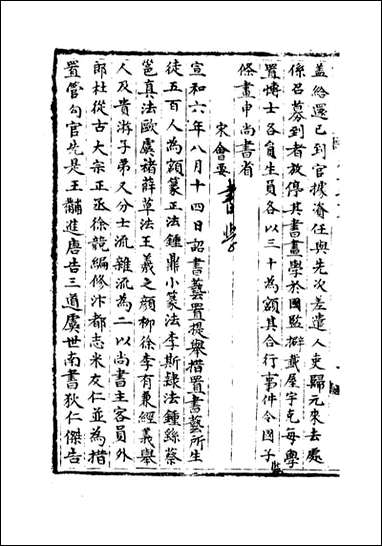 蓋給還已到官據資任與先次差遣人吏歸元來去處
係召募到者放停其書畫學於國監擗截屋宇屯每學
置博士各員生員各以三十為額其合行事件令國子監
條畫申尚書省
宋會要 書學
宣和六年八月十四日詔書藝置提舉措置書藝所生
徒五百人為額篆正法鍾鼎小篆法李斯隸法鍾繇蔡
邕真法歐虞褚薛草法王羲之顏柳徐李有兼經義舉
人及貴游子弟又分士流雜流為二以尚書主客員外
郎杜從古大宗正丞徐競編修汴都志米友仁並為措
置管勾官先是王黼進唐告三道虞世南書狄仁傑告